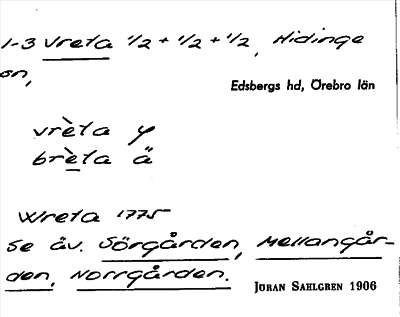 1-3 Vreta 1/2 + 1/2 + 1/2, Hidinge
sn,
Edsbergs hd, Örebro län
vrèta y
brèta ä
Wreta 1775
Se äv. Sörgården, Mellangår-
den, Norrgården.
JÖRAN SAHLGREN 1906